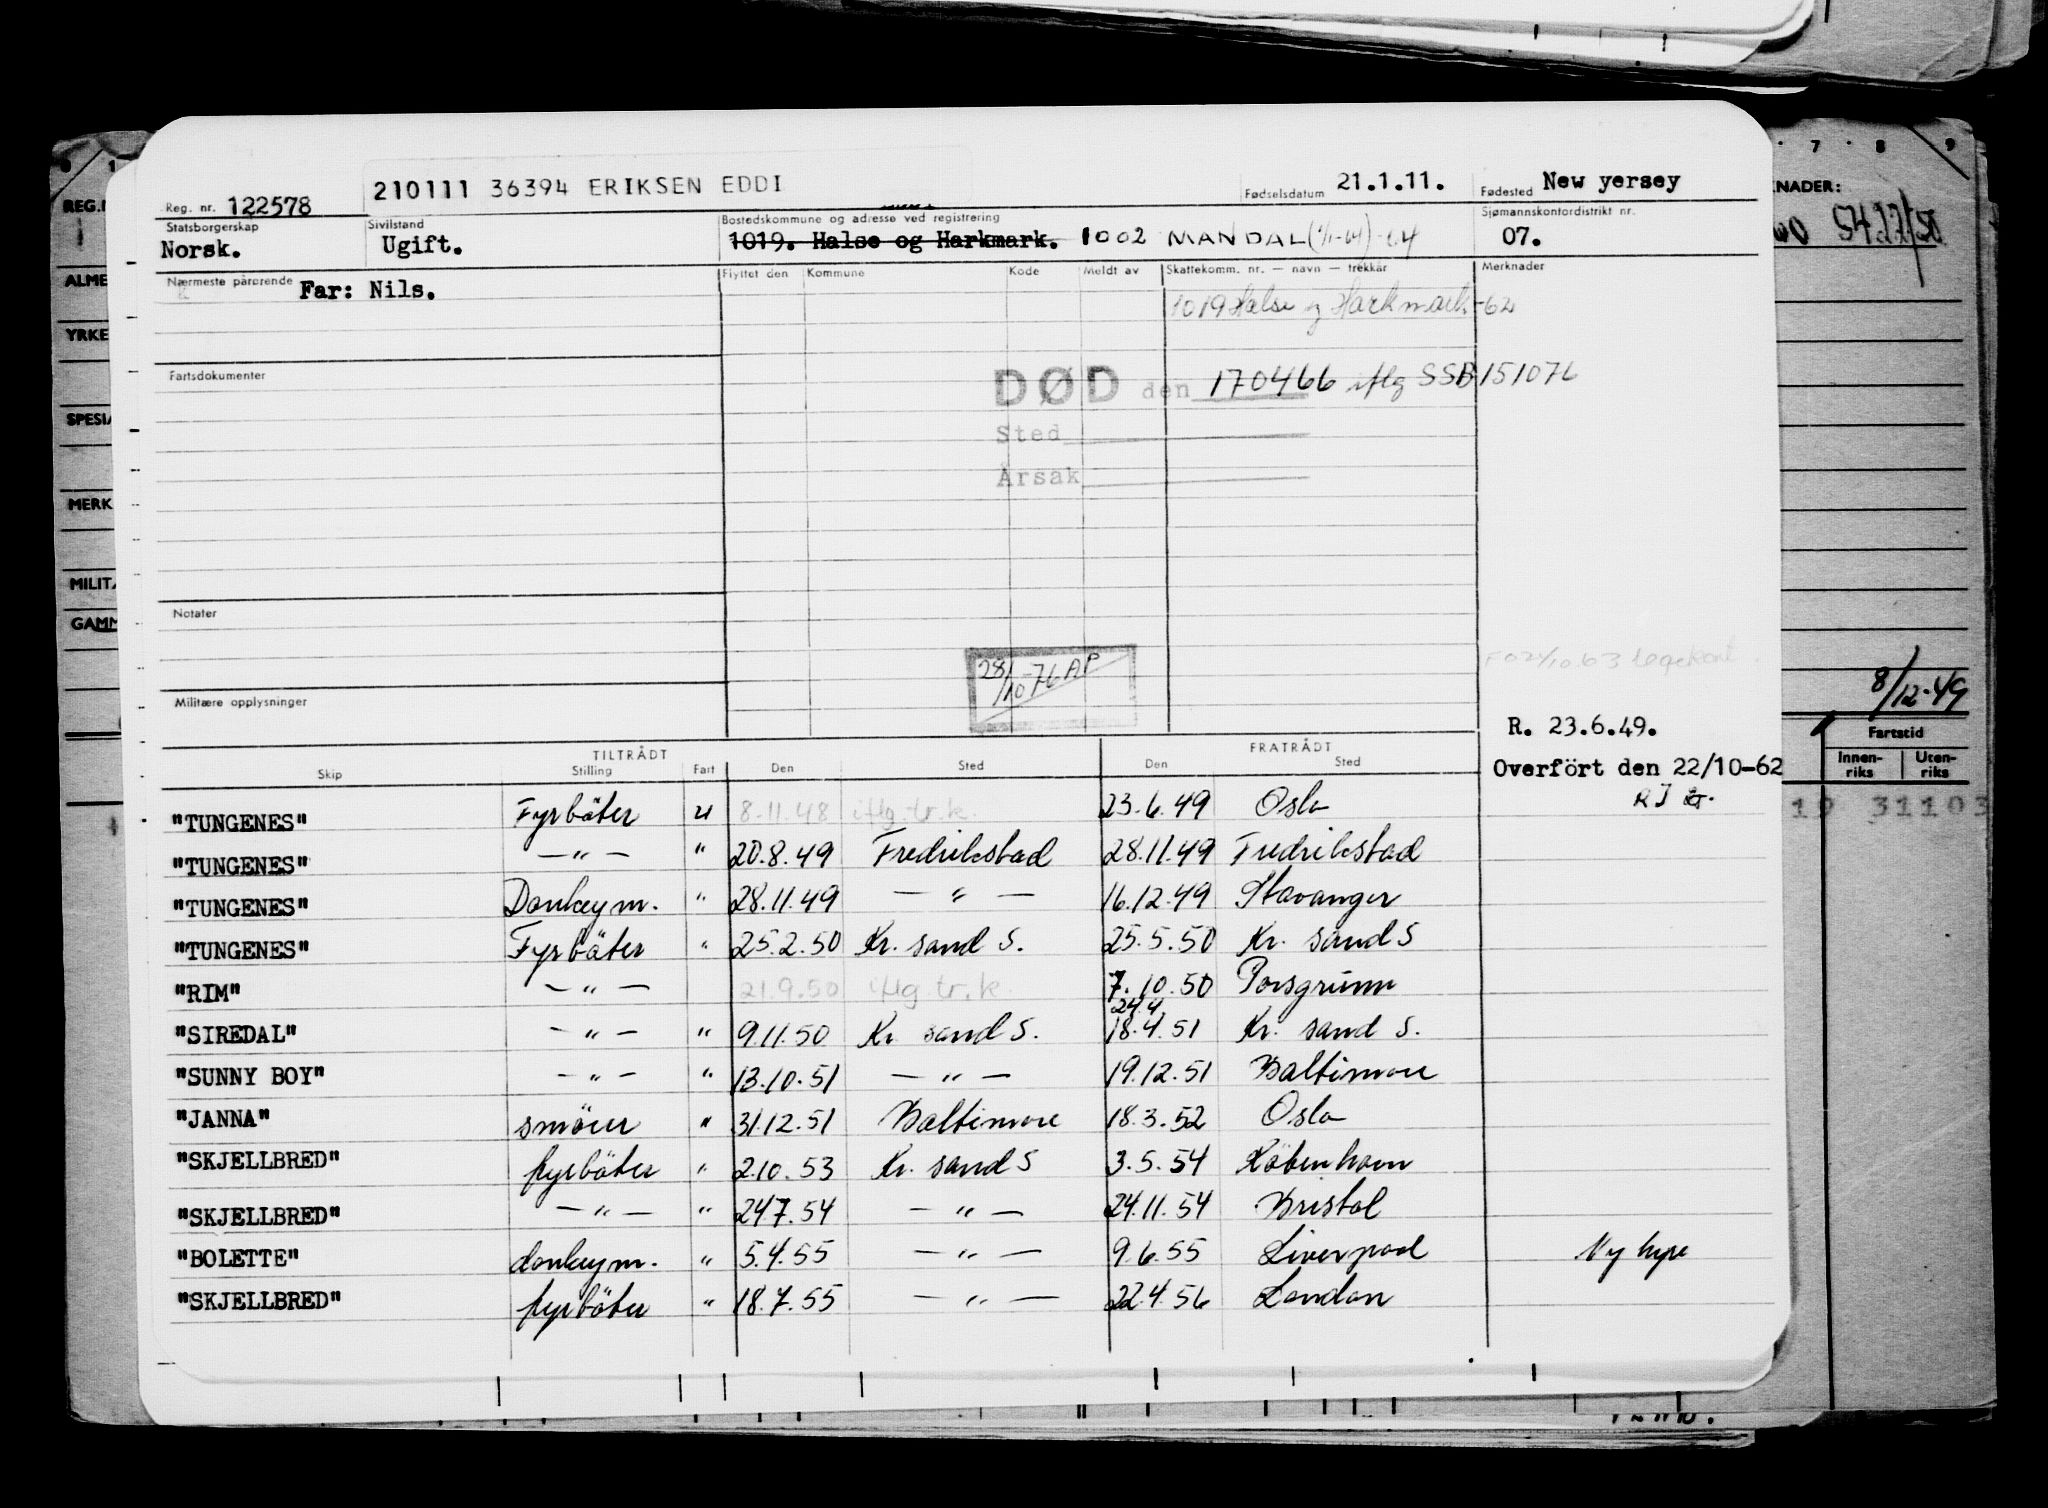 210111 36394 ERIKSEN EDDI
Reg. nr. 122578
Fødselsdatum 21.1.11.
Fødested New yersey
Statsborgerskap Norsk.
Sivilstand Ugift.
Bostedskommune og adresse ved registrering
1019. Halse og Harkmark. 1002 MANDAL (1/1-64)-64
Sjømannskontordistrikt nr. 07.
Nærmeste pårørende Far: Nils.
Flyttet den Kommune Kode Meldt av Skattekomm. nr. — navn — trekkår Merknader
1019 Halse og Harkmark-62
Fartsdokumenter
DØD den 170466 iflg SSB 151076
Sted
Årsak
Notater
28/10-76 AP
Militære opplysninger
R. 23.6.49.
Overfört den 22/10-62
TILTRÅDT FRATRÅDT
Skip Stilling Fart Den Sted Den Sted
"TUNGENES" Fyrböter u 8.11.48 iflg. tr. k. 23.6.49 Oslo
"TUNGENES" — " — " 20.8.49 Fredrikstad 28.11.49 Fredrikstad
"TUNGENES" Donkeym. " 28.11.49 — " — 16.12.49 Stavanger
"TUNGENES" Fyrböter " 25.2.50 Kr. sand S. 25.5.50 Kr. sand S
"RIM" — " — 21.9.50 iflg. tr. k. 7.10.50 Porsgrunn
24.4
"SIREDAL" — " — " 9.11.50 Kr. sand S. 18.4.51 Kr. sand S.
"SUNNY BOY" — " — " 13.10.51 — " — 19.12.51 Baltimore
"JANNA" smörer " 31.12.51 Baltimore 18.3.52 Oslo
"SKJELLBRED" fyrböter " 2.10.53 Kr. sand S 3.5.54 Köbenhavn
"SKJELLBRED" — " — " 24.7.54 — " — 24.11.54 Bristol
"BOLETTE" donkeym. " 5.4.55 — " — 9.6.55 Liverpool Ny hyre
"SKJELLBRED" fyrböter " 18.7.55 — " — 22.4.56 London
7 8 9
8/12-49
Fartstid
Innen-riks Uten-riks
19 31103